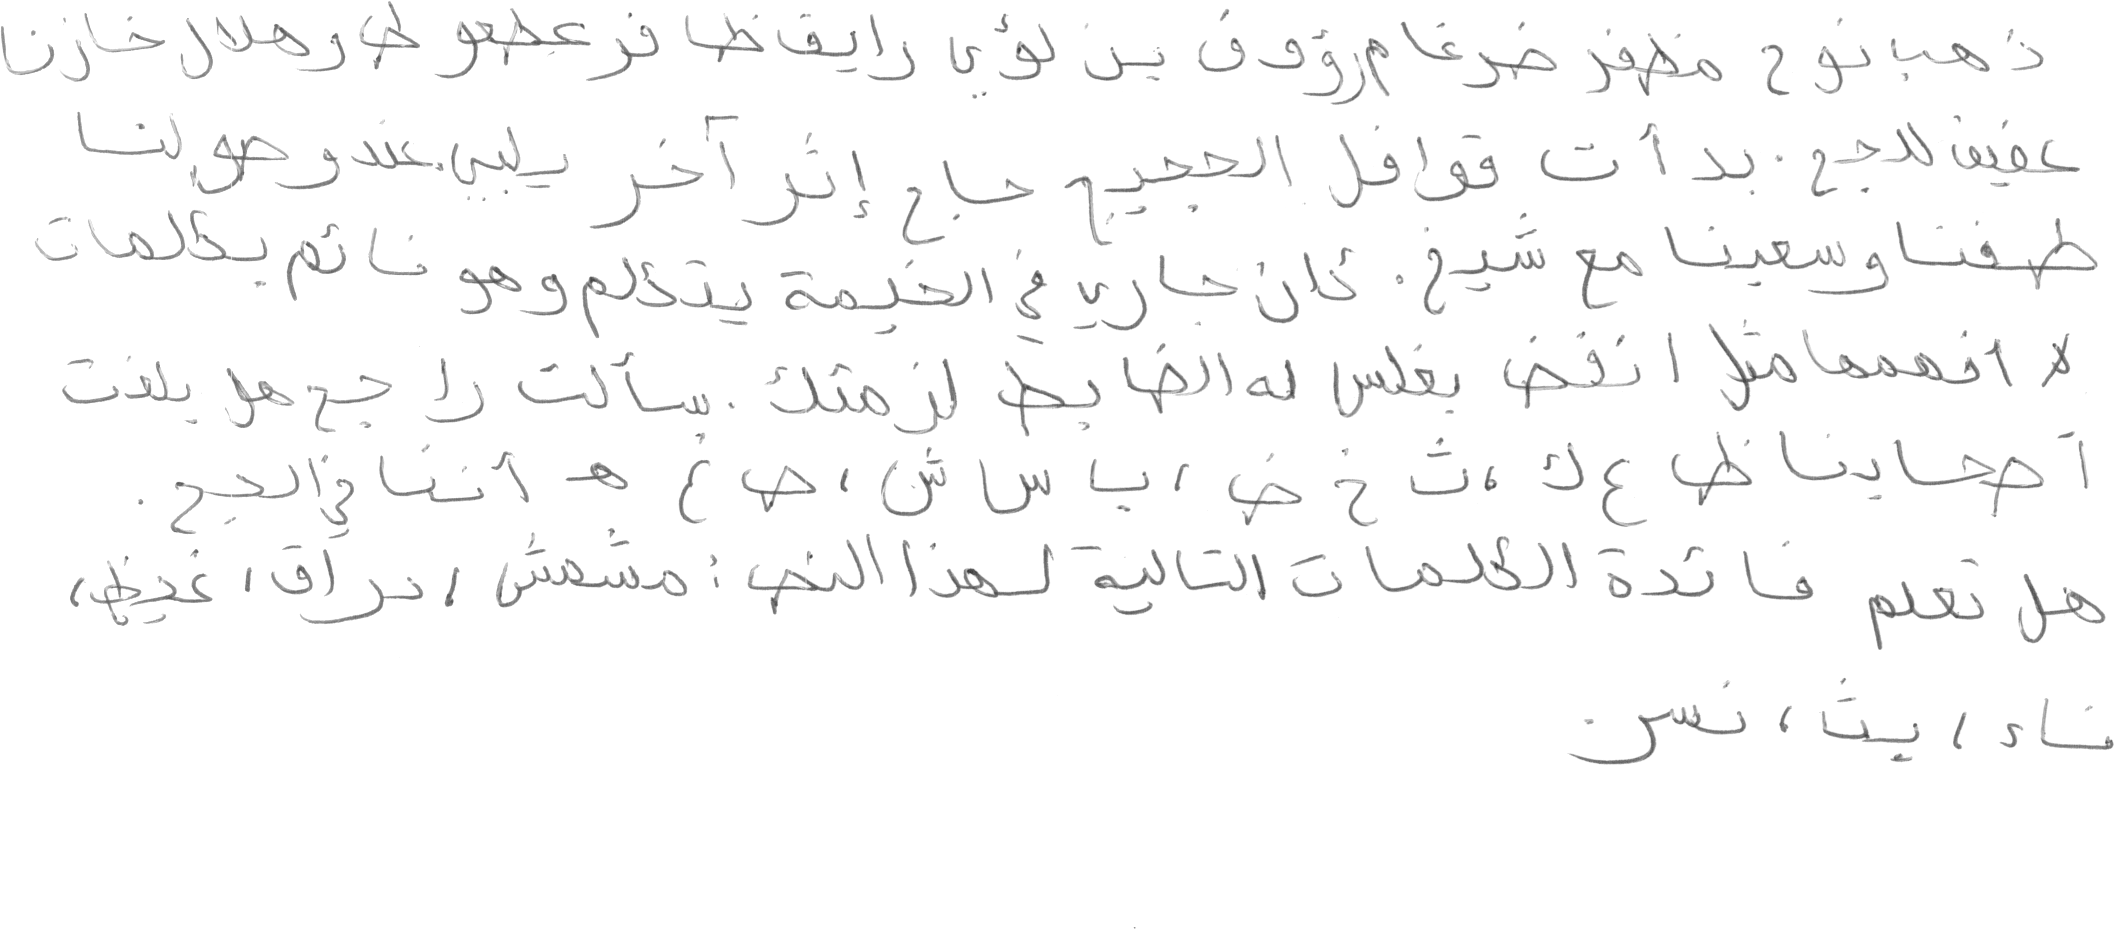 ذهب نوح مظفر ضرغام رؤوف بن لؤي رايقاظافر عطعوط وهلال خازنا
عفيف للحج. بدأت قوافل الحجيج حاج إثر آخر يلبي. عند وصولنا
طفنا وسعينا مع شيخ. كان جاري في الخيمة يتكلم وهو نائم بكلمات
لا أفهمها مثل انقض بغلس له الضابط لزمتك. سألت راجح هل بلغت
أصحابنا ظ ع ك، ث خ ض، ب س ش، ص غ هـ أننا في الحج.
هل تعلم فائدة الكلمات التالية لهذا النص: مشمش، براق، غيظ،
ناء، يث، نسن